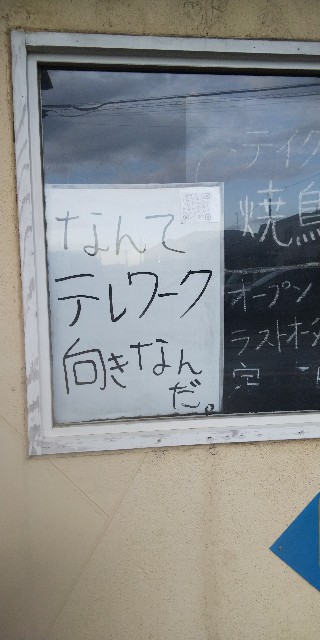 なんて
テレワーク
向きなん
だ。
テイク
焼鳥
オープン
ラストオーダ
定